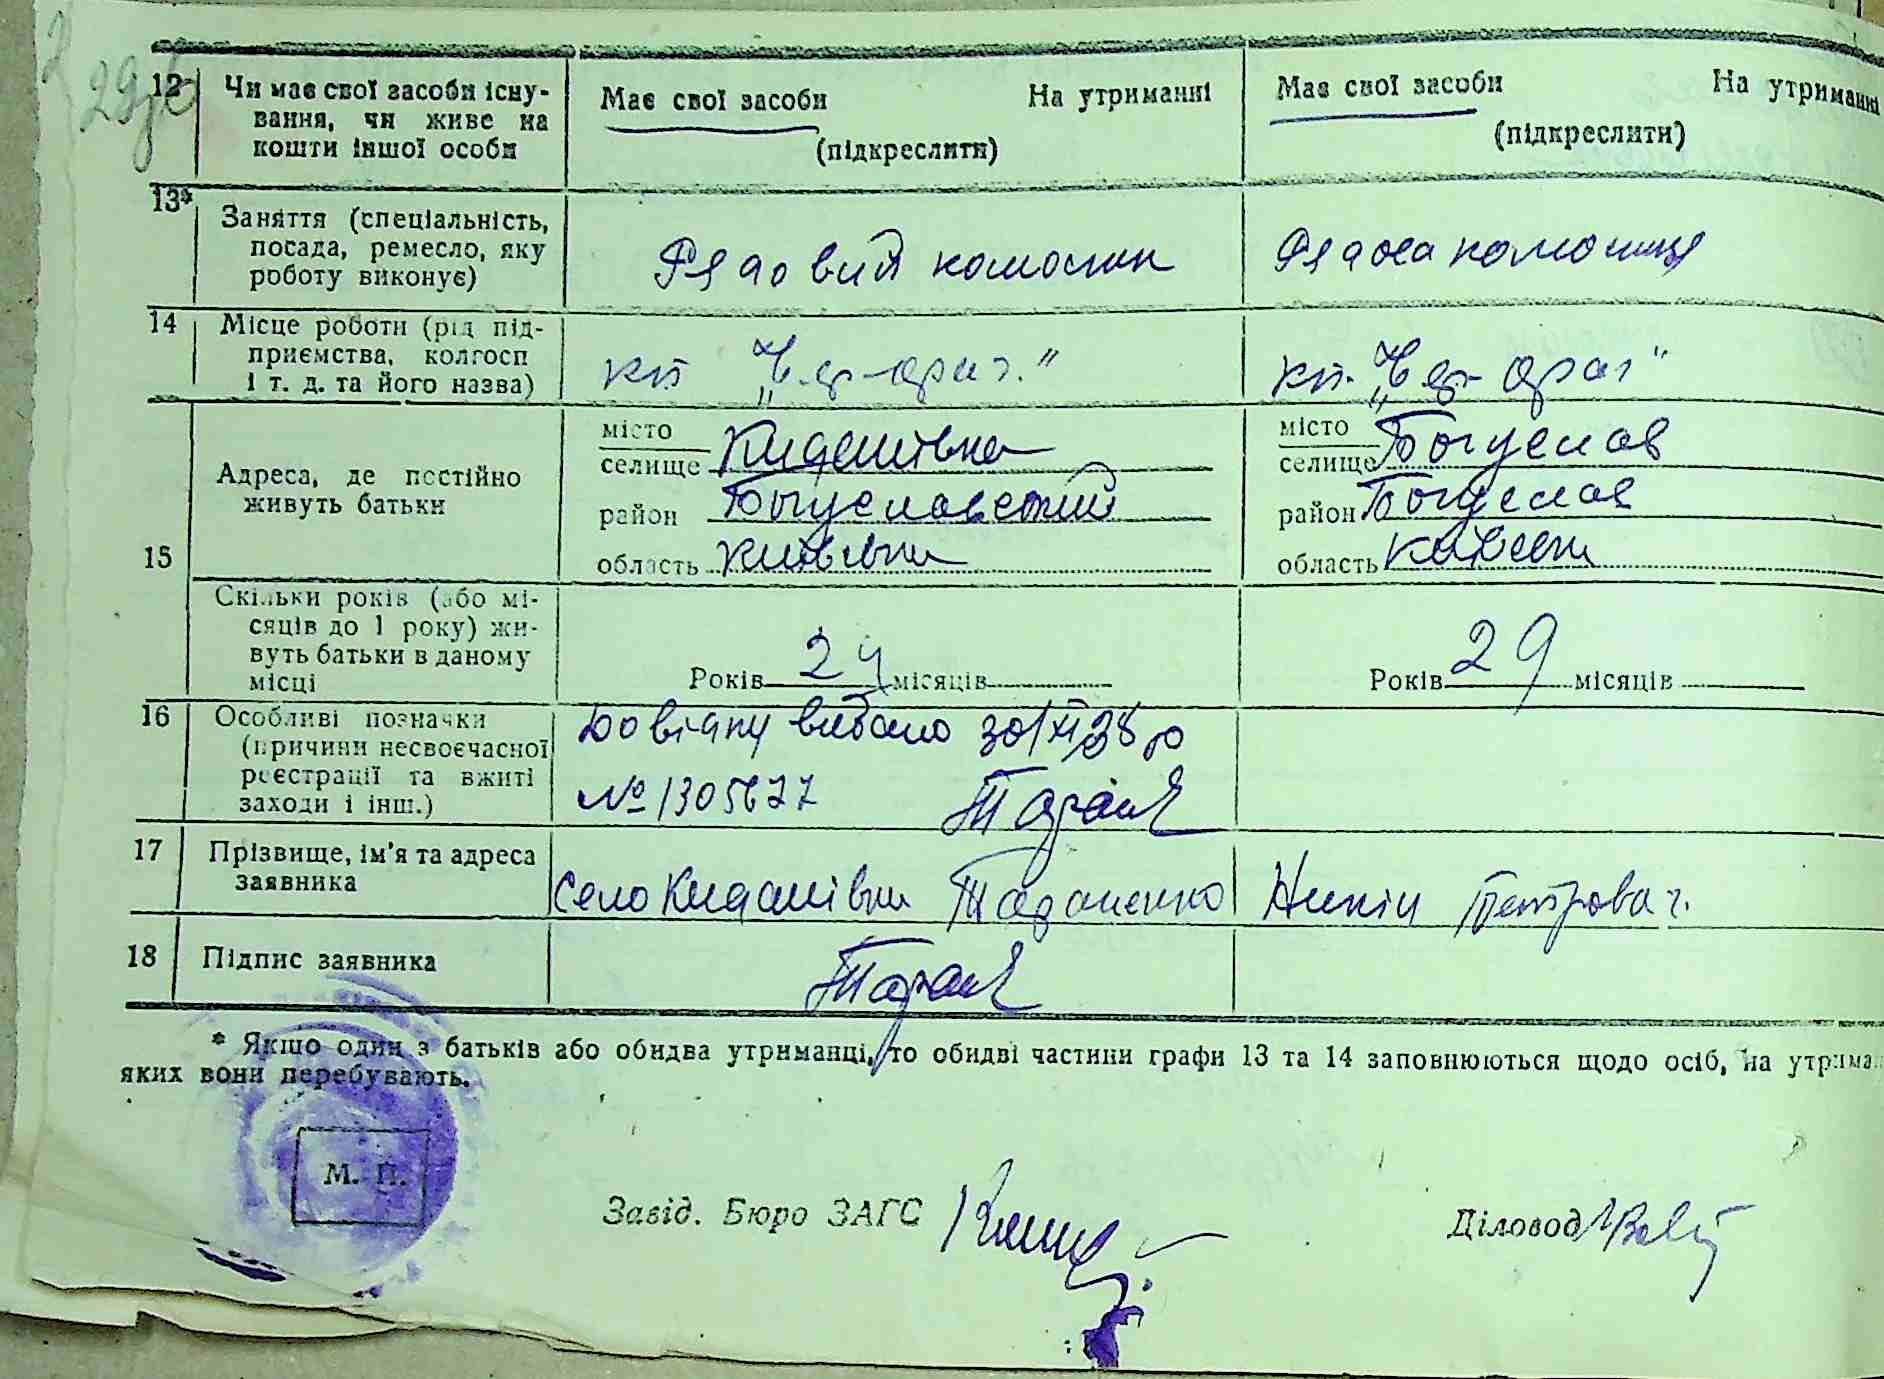 29
12 Чи має свої засоби існу-
вання, чи живе на
кошти іншої особи
Має свої засоби На утриманні
(підкреслити)
Має свої засоби На утриманні
(підкреслити)
13*
Заняття (спеціальність,
посада, ремесло, яку
роботу виконує)
Рядовий
Рядова
14 Місце роботи (рід під-
приємства, колгосп
і т. д. та його назва)
кп
кп.
15
Адреса, де постійно
живуть батьки
місто
селище Кидашівка
район Богуславський
область Київська
місто
селище Богуслав
район Богуслав
область
Скільки років (або мі-
сяців до 1 року) жи-
вуть батьки в даному
місці
Років 24 місяців
Років 29 місяців
16 Особливі позначки
(причини несвоєчасної
реєстрації та вжиті
заходи і інш.)
Довідку видано 30/XI 38 р
№ 1305677
17 Прізвище, ім'я та адреса
заявника
Село Тараненко Петрович.
18 Підпис заявника
* Якщо один з батьків або обидва утриманці, то обидві частини графи 13 та 14 заповнюються щодо осіб, на
яких вони перебувають.
М. П.
Завід. Бюро ЗАГС
Діловод